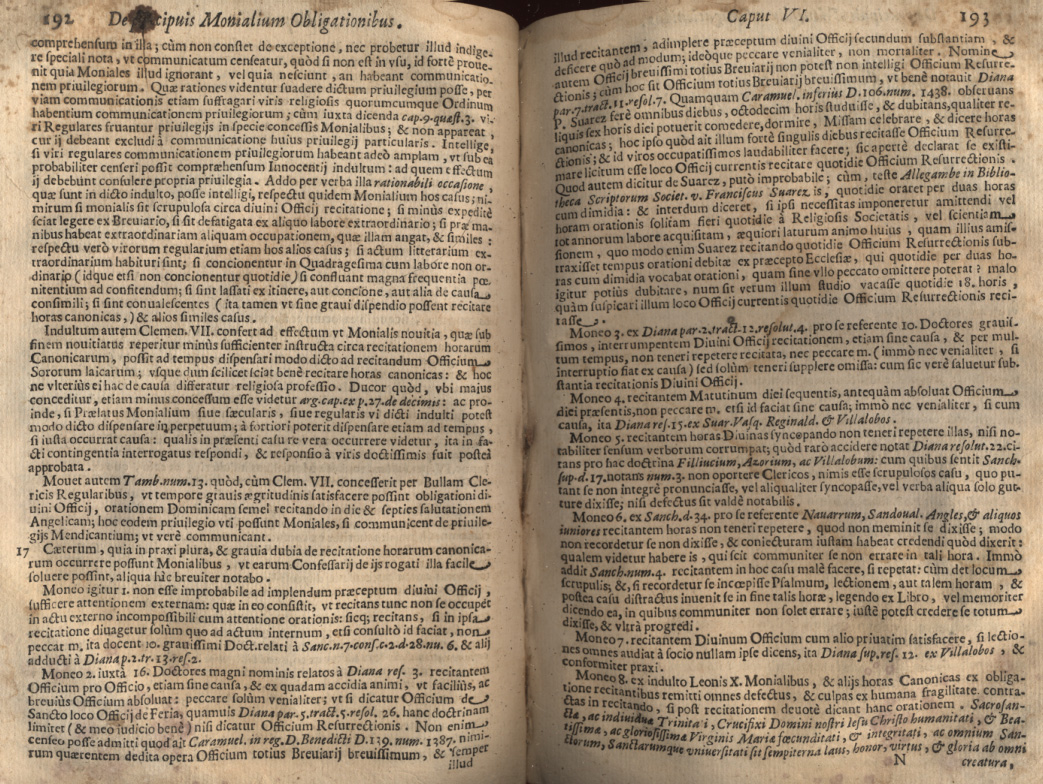 192 De Præcipuis Monialium Obligationibus.
comprehensum in illa; cùm non constet de exceptione, nec probetur illud indige-
re speciali nota, vt communicatum censeatur, quòd si non est in vsu, id fortè proue-
nit quia Moniales illud ignorant, vel quia nesciunt, an habeant communicatio-
nem priuilegiorum. Quæ rationes videntur suadere dictum priuilegium posse, per
viam communicationis etiam suffragari viris religiosis quorumcumque Ordinum
habentium communicationem priuilegiorum; cùm iuxta dicenda cap.9.quæst.3. vi-
ri Regulares fruantur priuilegijs in specie concessis Monialibus; & non appareat,
cur ij debeant excludi à communicatione huius priuilegij particularis. Intellige,
si viri regulares communicationem priuilegiorum habeant adeò amplam, vt sub ea
probabiliter censeri possit compræhensum Innocentij indultum: ad quem effectum
ij debebunt consulere propria priuilegia. Addo per verba illa rationabili occasione,
quæ sunt in dicto indulto, posse intelligi, respectu quidem Monialium hos casus; ni-
mirum si monialis sit scrupulosa circa diuini Officij recitatione; si minùs expeditè
sciat legere ex Breuiario, si sit defatigata ex aliquo labore extraordinario; si præ ma-
nibus habeat extraordinariam aliquam occupationem, quæ illam angat, & similes:
respectu verò virorum regularium etiam hos alios casus; si actum litterarium ex-
traordinarium habituri sint; si concionentur in Quadragesima cum labore non or-
dinario (idque etsi non concionentur quotidie) si confluant magna frequentia pœ-
nitentium ad confitendum; si sint lassati ex itinere, aut concione, aut alit de causa
consimili; si sint conualescentes (ita tamen vt sine graui dispendio possent recitare
horas canonicas,) & alios similes casus.
Indultum autem Clemen. VII. confert ad effectum vt Monialis nouitia, quæ sub
finem nouitiatus reperitur minùs sufficienter instructa circa recitationem horarum
Canonicarum, possit ad tempus dispensari modo dicto ad recitandum Officium
Sororum laicarum; vsque dum scilicet sciat benè recitare horas canonicas: & hoc
ne vlteriùs ei hac de causa differatur religiosa professio. Ducor quòd, vbi maius
conceditur, etiam minus concessum esse videtur arg.cap.ex p.27.de decimis: ac pro-
inde, si Prælatus Monialium siue sæcularis, siue regularis vi dicti indulti potest
modo dicto dispensare in perpetuum; à fortiori poterit dispensare etiam ad tempus,
si iusta occurrat causa: qualis in præsenti casu re vera occurrere videtur, ita in fa-
cti contingentia interrogatus respondi, & responsio à viris doctissimis fuit posteà
approbata.
Mouet autem Tamb.num.13. quòd, cùm Clem. VII. concesserit per Bullam Cle-
ricis Regularibus, vt tempore grauis ægritudinis satisfacere possint obligationi di-
uini Officij, orationem Dominicam semel recitando in die & septies salutationem
Angelicam; hoc eodem priuilegio vti possunt Moniales, si communicent de priuile-
gijs Mendicantium; vt verè communicant.
17 Cæterum, quia in praxi plura, & grauia dubia de recitatione horarum canonica-
rum occurrere possunt Monialibus, vt earum Confessarij de ijs rogati illa facile
soluere possint, aliqua hîc breuiter notabo.
Moneo igitur 1. non esse improbabile ad implendum præceptum diuini Officij,
sufficere attentionem externam: quæ in eo consistit, vt recitans tunc non se occupet
in actu externo incompossibili cum attentione orationis: sicq; recitans, si in ipsa
recitatione diuagetur solùm quo ad actum internum, etsi consultò id faciat, non
peccat m. ita docent 10. grauissimi Doct.relati à Sanc.n.7.cons.c.2.d.28.nu.6. & alij
adducti à Diana p.2.tr.13.res.2.
Moneo 2. iuxtà 16. Doctores magni nominis relatos à Diana res. 3. recitantem
Officium pro Officio, etiam sine causa, & ex quadam accidia animi, vt faciliùs, ac
breuiùs Officium absoluat: peccare solùm venialiter; vti si dicatur Officium de
Sancto loco Officij de Feria, quamuis Diana par.5.tract.5.resol. 26. hanc doctrinam
limitet (& meo iudicio benè) nisi dicatur Officium Resurrectionis. Non enim
censeo posse admitti quod ait Caramuel. in reg.D.Benedicti D.139.num. 1287. nimi-
rum quærentem dedita opera Officium totius Breuiarij breuissimum, & semper
illud
Caput VI. 193
illud recitantem, adimplere præceptum diuini Officij secundum substantiam, &
deficere quò ad modum; ideòque peccare venialiter, non mortaliter. Nomine
autem Officij breuissimi totius Breuiarij non potest non intelligi Officium Resurre-
ctionis; cùm hoc sit Officium totius Breuiarij breuissimum, vt benè notauit Diana
par.7.tract.11.resol.7. Quamquam Caramuel. inferius D.106.num. 1438. obseruans
P. Suarez ferè omnibus diebus, octodecim horis studuisse, & dubitans, qualiter re-
liquis sex horis diei potuerit comedere, dormire, Missam celebrare, & dicere horas
canonicas; hoc ipso quòd ait illum fortè singulis diebus recitasse Officium Resurre-
ctionis; & id viros occupatissimos laudabiliter facere; sic apertè declarat se existi-
mare licitum esse loco Officij currentis recitare quotidie Officium Resurrectionis.
Quod autem dicitur de Suarez, puto improbabile; cùm, teste Allegambe in Biblio-
theca Scriptorum Societ. v. Franciscus Suarez, is, quotidie oraret per duas horas
cum dimidia: & interdum diceret, si ipsi necessitas imponeretur amittendi vel
horam orationis solitam fieri quotidie à Religiosis Societatis, vel scientiam
tot annorum labore acquisitam, æquiori laturum animo huius, quam illius amis-
sionem, quo modo enim Suarez recitando quotidie Officium Resurrectionis sub-
traxisset tempus orationi debitæ ex præcepto Ecclesiæ, qui quotidie per duas ho-
ras cum dimidia vocabat orationi, quam sine vllo peccato omittere poterat? malo
igitur potiùs dubitare, num sit verum illum studio vacasse quotidie 18. horis,
quàm suspicari illum loco Officij currentis quotidie Officium Resurrectionis reci-
tasse.
Moneo 3. ex Diana par.2.tract.12.resolut.4. pro se referente 10. Doctores grauis-
simos, interrumpentem Diuini Officij recitationem, etiam sine causa, & per mul-
tum tempus, non teneri repetere recitata, nec peccare m. (immò nec venialiter, si
interruptio fiat ex causa) sed solùm teneri supplere omissa: cum sic verè saluetur sub-
stantia recitationis Diuini Officij.
Moneo 4. recitantem Matutinum diei sequentis, antequàm absoluat Officium
diei præsentis, non peccare m. etsi id faciat sine causa; immò nec venialiter, si cum
causa, ita Diana res.15.ex Suar.Vasq. Reginald. & Villalobos.
Moneo 5. recitantem horas Diuinas syncopando non teneri repetere illas, nisi no-
tabiliter sensum verborum corrumpat; quòd rarò accidere notat Diana resolut.22.ci-
tans pro hac doctrina Filliucium, Azorium, ac Villalobum: cum quibus sentit Sanch.
sup.d.17.notans num.3. non oportere Clericos, nimis esse scrupulosos casu, quo pu-
tant se non integrè pronunciasse, vel aliqualiter syncopasse, vel verba aliqua solo gut-
ture dixisse; nisi defectus sit valdè notabilis.
Moneo 6. ex Sanch.d.34. pro se referente Nauarrum, Sandoual. Angles, & aliquos
iuniores recitantem horas non teneri repetere, quod non meminit se dixisse; modo
non recordetur se non dixisse, & coniecturam iustam habeat credendi quòd dixerit:
qualem videtur habere is, qui scit communiter se non errare in tali hora. Immò
addit Sanch.num.4. recitantem in hoc casu malè facere, si repetat: cùm det locum
scrupulis; &, si recordetur se incœpisse Psalmum, lectionem, aut talem horam, &
postea casu distractus inuenit se in fine talis horæ, legendo ex Libro, vel memoriter
dicendo ea, in quibus communiter non solet errare; iustè potest credere se totum
dixisse, & vltrà progredi.
Moneo 7. recitantem Diuinum Officium cum alio priuatim satisfacere, si lectio-
nes omnes audiat à socio nullam ipse dicens, ita Diana sup.res. 12. ex Villalobos, &
conformiter praxi.
Moneo 8. ex indulto Leonis X. Monialibus, & alijs horas Canonicas ex obliga-
tione recitantibus remitti omnes defectus, & culpas ex humana fragilitate. contra-
ctas in recitando, si post recitationem deuotè dicant hanc orationem. Sacrosan-
ctæ, ac indiuiduæ Trinitati, Crucifixi Domini nostri Iesu Christo humanitati, & Bea-
tissimæ, ac gloriosissimæ Virginis Mariæ fœcunditati, & integritati, ac omnium San-
ctorum, Sanctarumque vniuersitati sit sempiterna laus, honor, virtus, & gloria ab omni
N creatura,